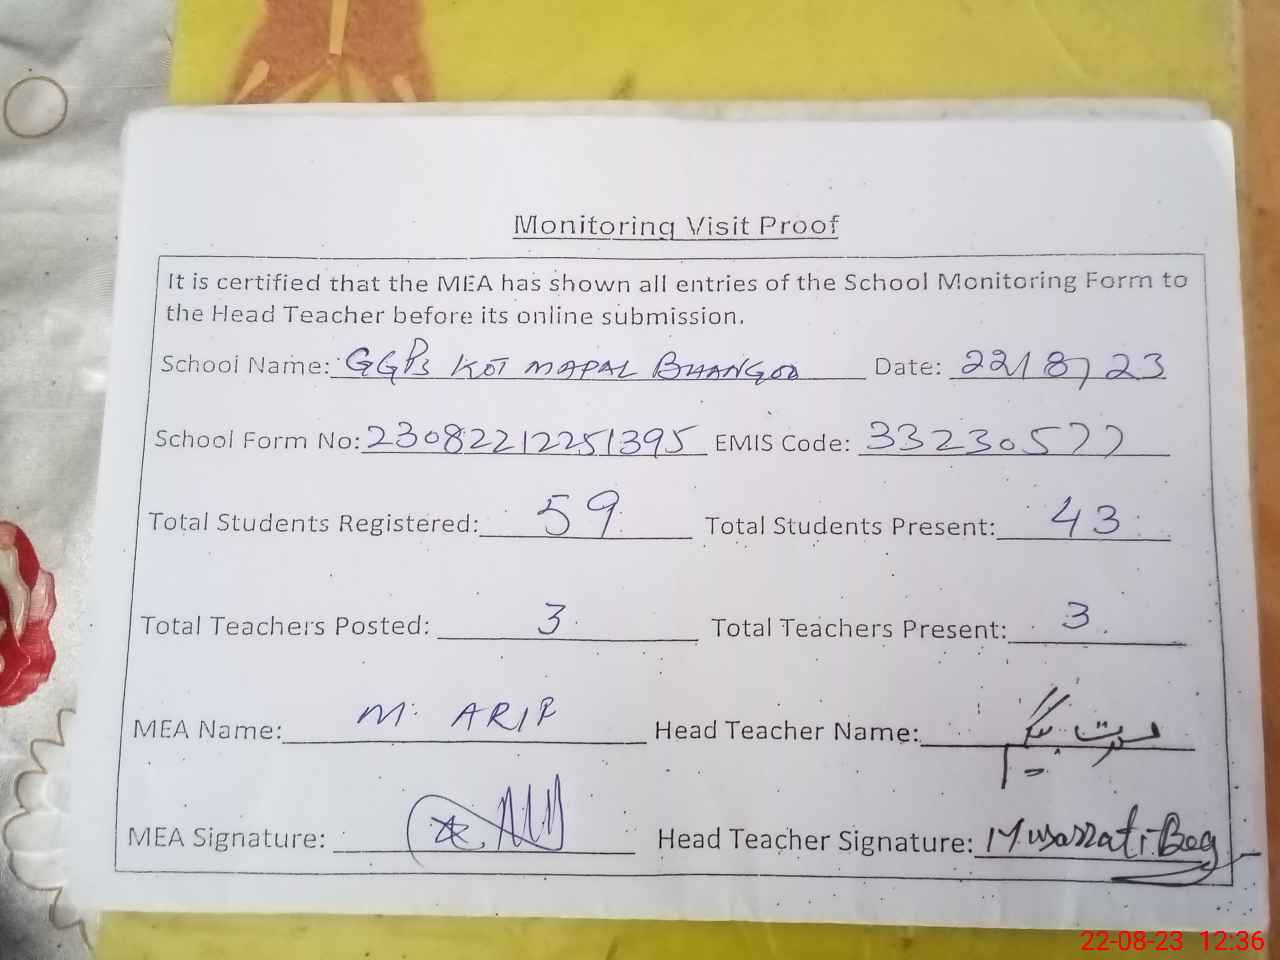 Monitoring Visit Proof
It is certified that the MEA has shown all entries of the School Monitoring Form to
the Head Teacher before its online submission.
School Name: GGPS KOT MAPAL BHANGOO Date: 22/8/23
School Form No: 23082212251395 EMIS Code: 33230577
Total Students Registered: 59 Total Students Present: 43
Total Teachers Posted: 3 Total Teachers Present: 3
MEA Name: M. ARIF Head Teacher Name: مسرت بیگم
MEA Signature: Head Teacher Signature: Musarrat Beg
22-08-23 12:36